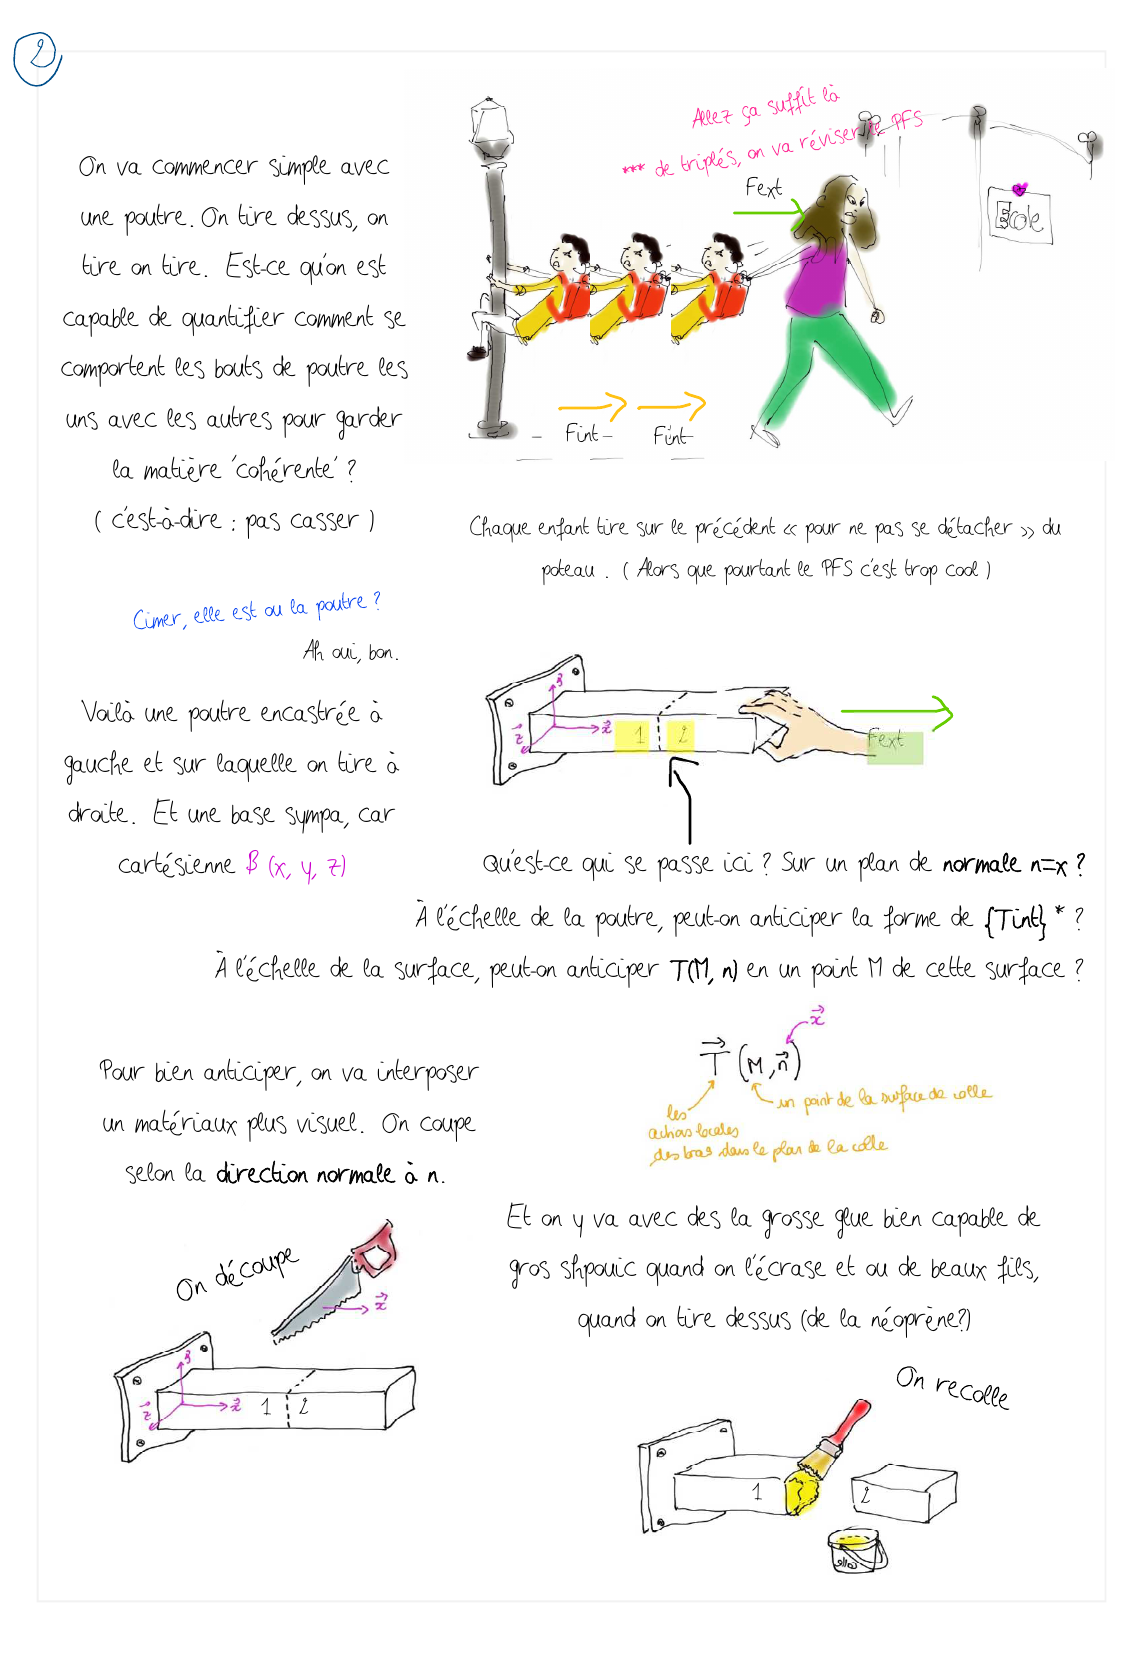 2
On va commencer simple avec
une poutre. On tire dessus, on
tire on tire. Est-ce qu'on est
capable de quantifier comment se
comportent les bouts de poutre les
uns avec les autres pour garder
la matière 'cohérente' ?
( c'est-à-dire : pas casser )
Allez ça suffit là
*** de triplés, on va réviser le PFS
Fext
École
Fint
Fint
Chaque enfant tire sur le précédent « pour ne pas se détacher » du
poteau . ( Alors que pourtant le PFS c'est trop cool )
Cimer, elle est ou la poutre ?
Ah oui, bon.
Voilà une poutre encastrée à
gauche et sur laquelle on tire à
droite. Et une base sympa, car
cartésienne B (x, y, z)
z
x
1
2
Fext
Qu'est-ce qui se passe ici ? Sur un plan de normale n=x ?
À l'échelle de la poutre, peut-on anticiper la forme de {Tint} * ?
À l'échelle de la surface, peut-on anticiper T(M, n) en un point M de cette surface ?
x
T (M, n)
un point de la surface de colle
les
actions locales
des bras dans le plan de la colle
Pour bien anticiper, on va interposer
un matériaux plus visuel. On coupe
selon la direction normale à n.
Et on y va avec des la grosse glue bien capable de
gros shpouic quand on l'écrase et ou de beaux fils,
quand on tire dessus (de la néoprène?)
On découpe
x
z
x
1
2
On recolle
1
2